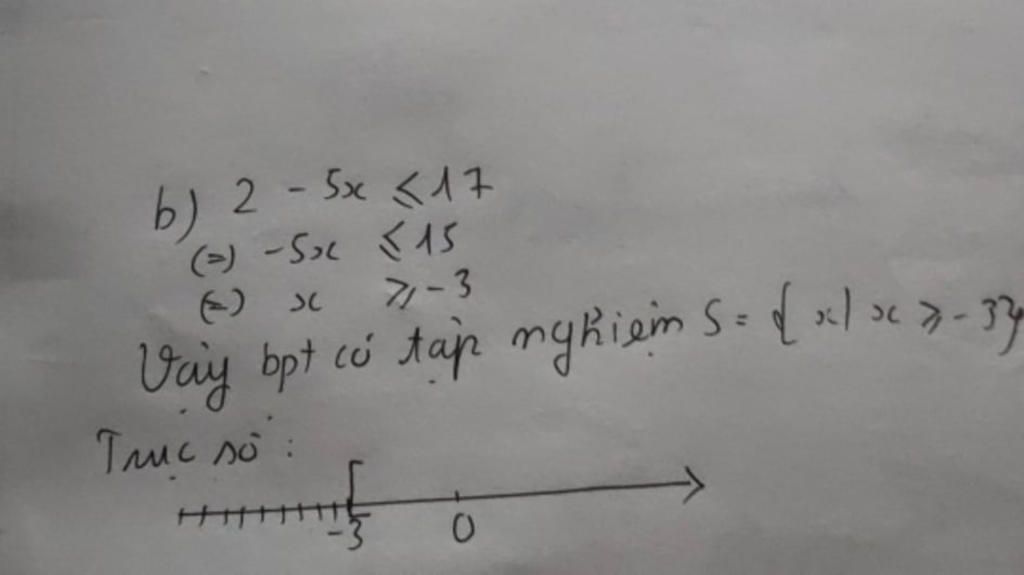 b) 2 - 5x ≤ 17
(=) -5x ≤ 15
(=) x ≥ -3
Vậy bpt có tập nghiệm S = { x | x ≥ -3}
Trục số :
-3 0